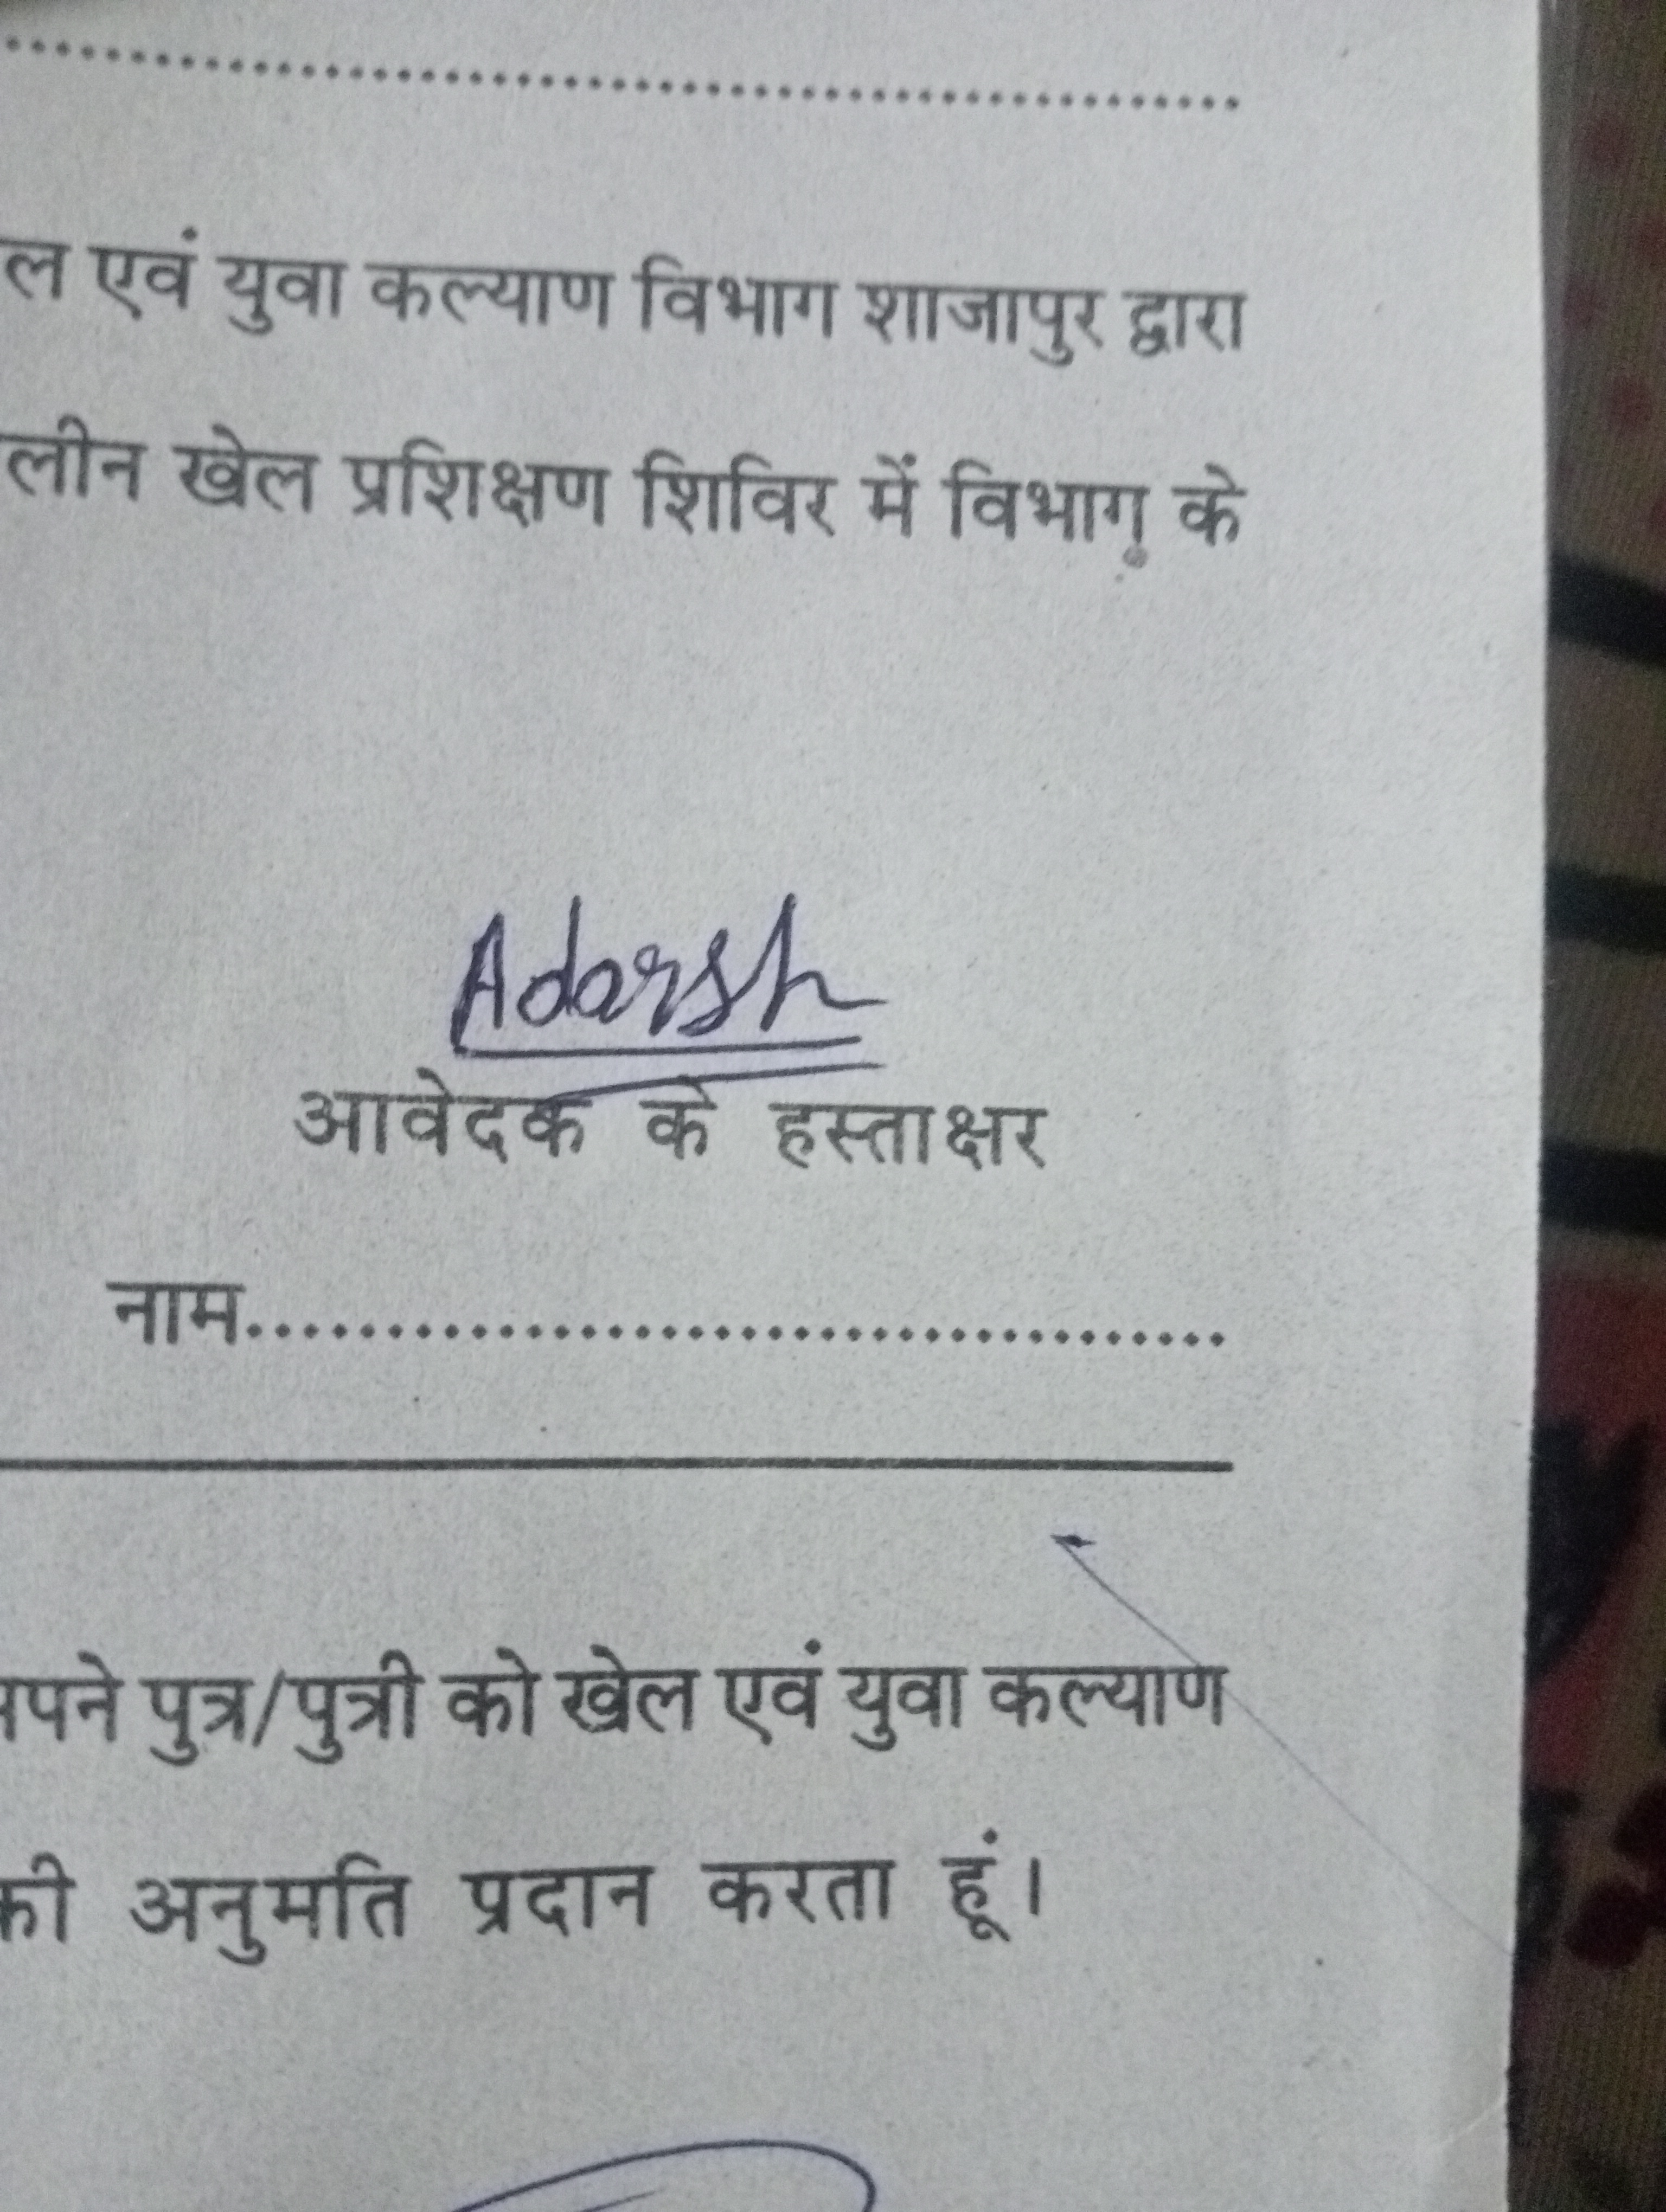 ........................................................
ल एवं युवा कल्याण विभाग शाजापुर द्वारा
लीन खेल प्रशिक्षण शिविर में विभाग के
Adarsh
आवेदक के हस्ताक्षर
नाम.......................................
पने पुत्र/पुत्री को खेल एवं युवा कल्याण
की अनुमति प्रदान करता हूं।